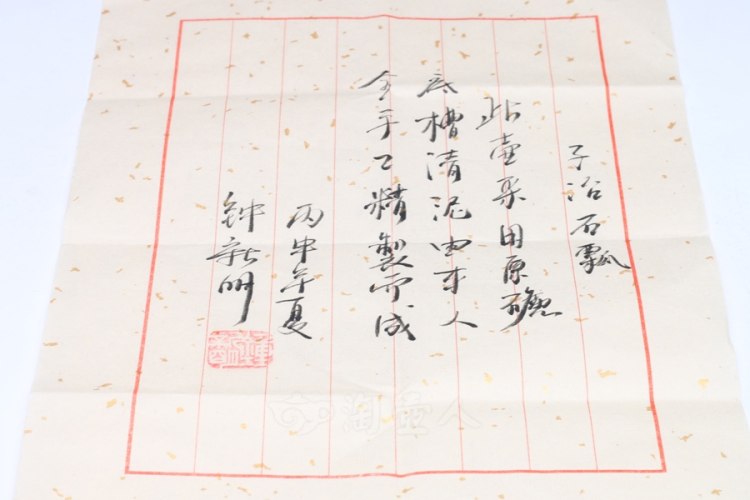 子冶石瓢
此壶采用原矿
底槽清泥由本人
全手工精製而成
丙申年夏
钟新明
淘壶人